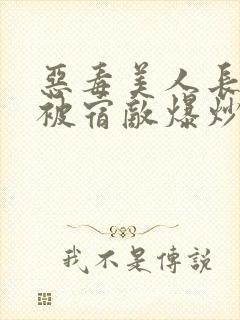 惡毒美人長
被宿敵爆炒
我不是傳說